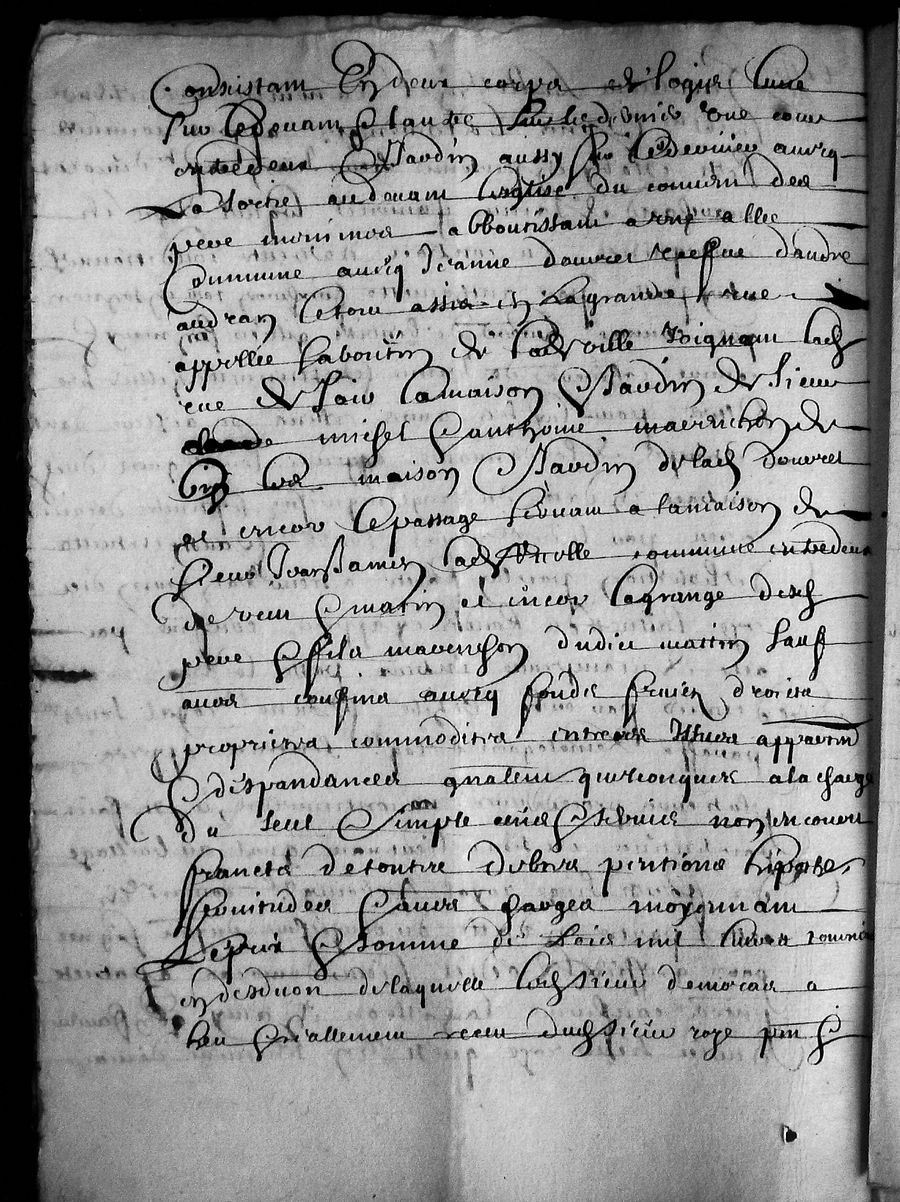 Consistant En deux corps de logis lune
sur le devant & lautre sur le derrier une cour
entredeux & Jardin aussy sur le derriere avecq
La sortie au devant leglise du couvent des
peres minimes abboutissant a une allee
Commune avecq Jeanne douvret vefve dandre
audran le tout assis en la grande rue
appellee la boutin de lad ville Joignant lad
rue de soir la maison & Jardin de sieur
michel & anthoine mavrichon de
bize les maison & Jardin de lad douvret
et encor le passage servant a la maison de
sieur Jean Jamen lad allee commune entredeux
de vent & matin et encor la grange desd
pere & fils mavrichon dudit matin sauf
aures confins avecq fonds fruictz droicts
proprietes commodites entrees Issues appartenances
& despandances qualcunques quelconques a la charge
du seul & simple cens & servis non encouru
francts de toutes debtes pentions hipoteques
servitudes & aures charges moyennant
Le prix & somme de trois mil livres tournois
en desduction de laquelle led sieur demoras a
heu & reallement receu dud sieur roze